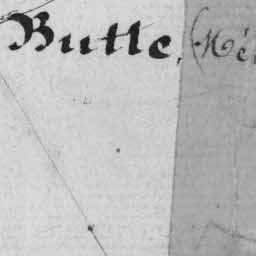 Butte, (Mé